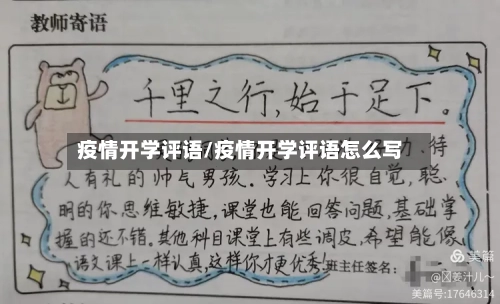 教师寄语
千里之行，始于足下。
疫情开学评语/疫情开学评语怎么写
力、待
人有礼的帅气男孩。学习上你很自觉，聪
明的你思维敏捷，课堂也能回答问题，基础掌
握的还不错。其他科目课堂上有些调皮，希望能像
语文课上一样认真，这样你才更优秀！班主任签名：
美篇
@囡姜汁儿～
美篇号:17646314